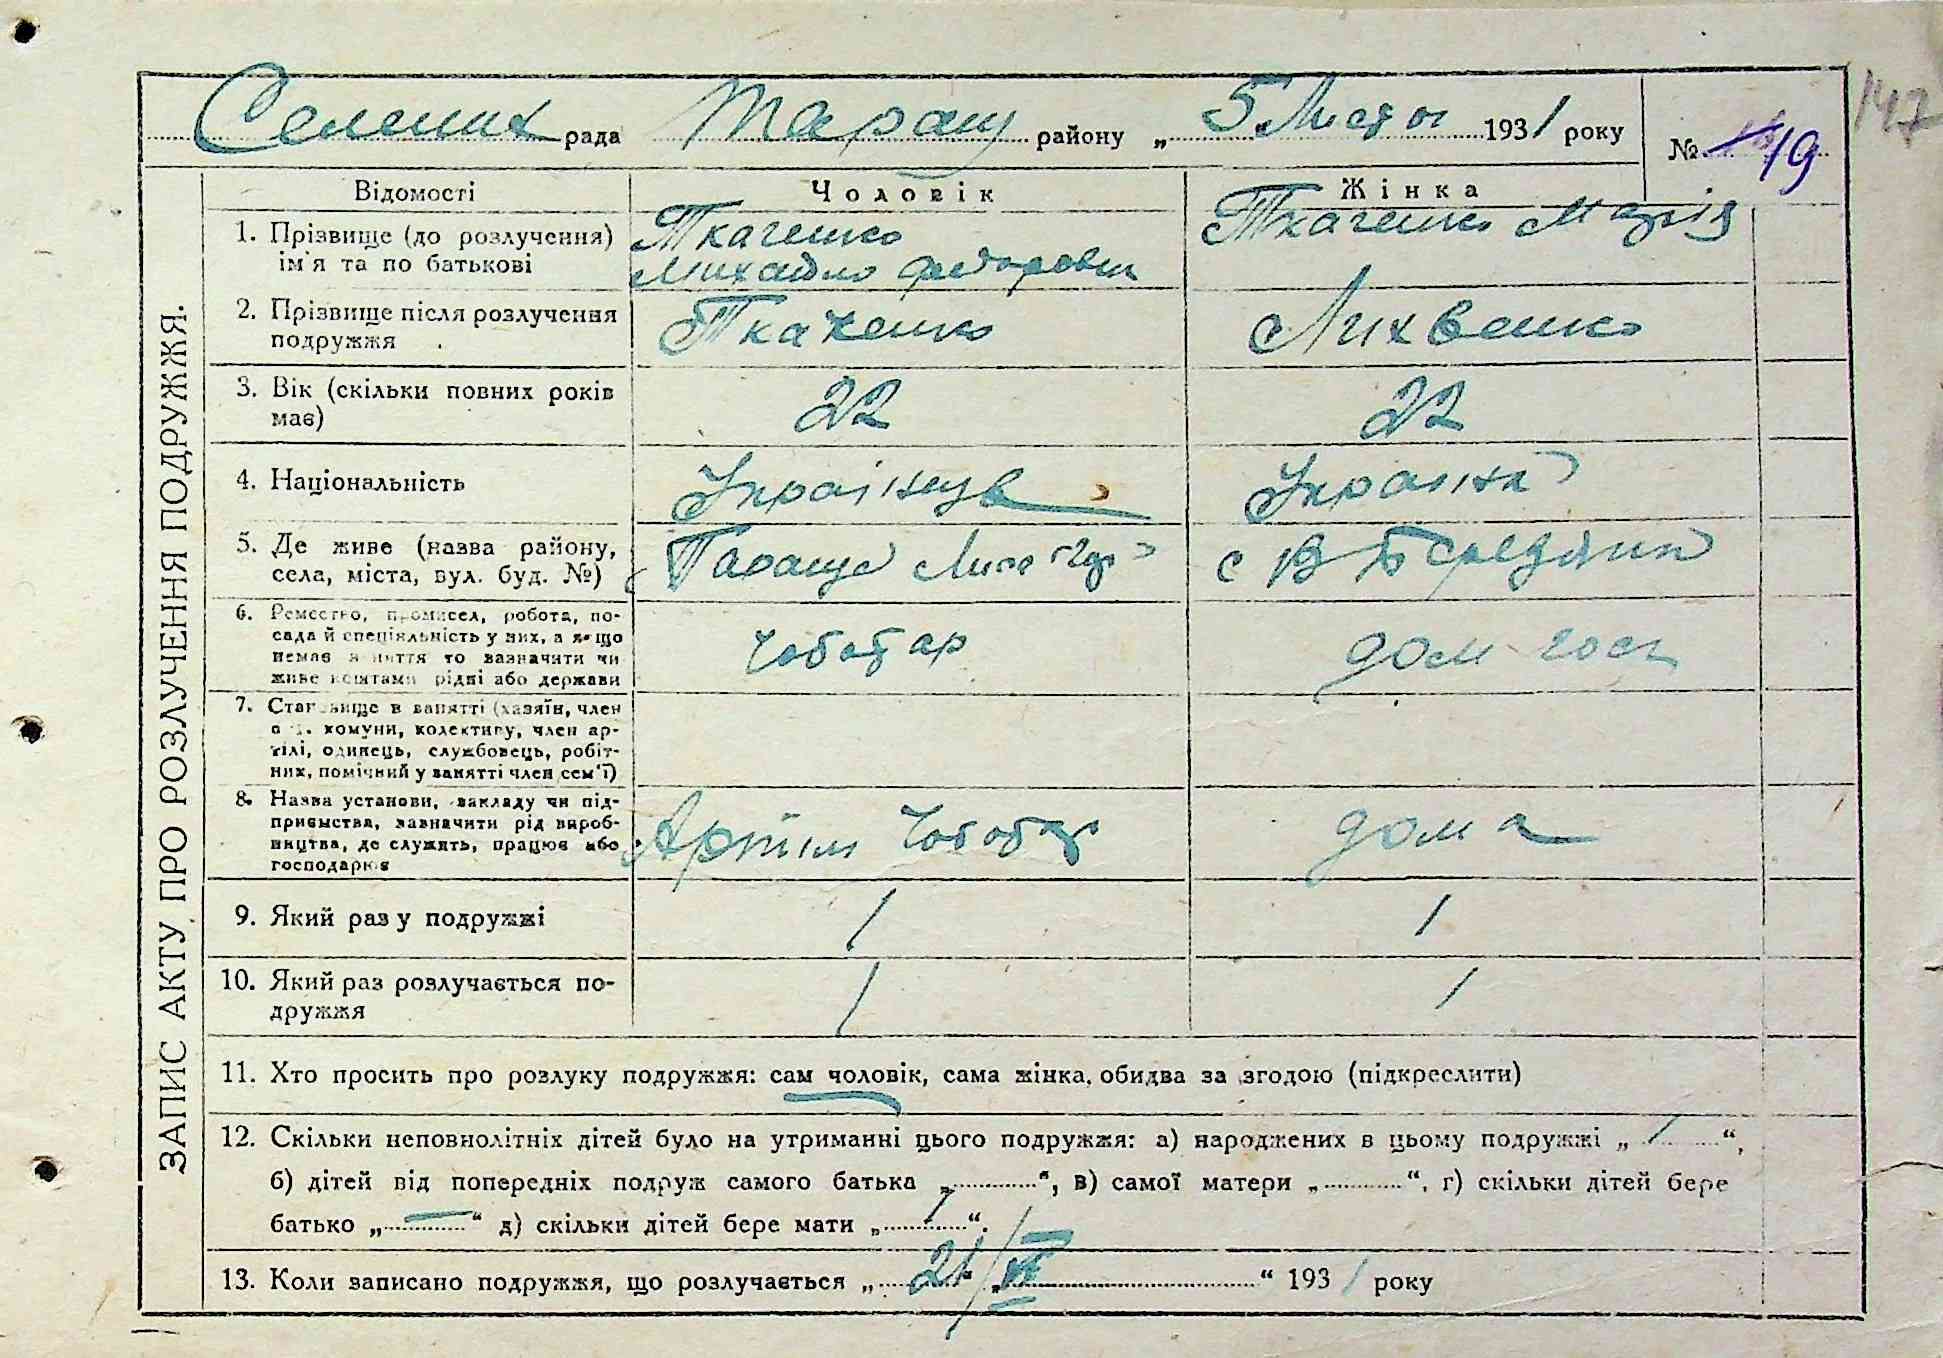 147
Селених рада Таращ району „ 5 Листоп 1931 року № 19
ЗАПИС АКТУ ПРО РОЗЛУЧЕННЯ ПОДРУЖЖЯ.
Відомості Чоловік Жінка
1. Прізвище (до розлучення) Ткаченко Ткаченко Марія
ім'я та по батькові Михайло Федорович
2. Прізвище після розлучення Ткаченко Лихвенко
подружжя
3. Вік (скільки повних років 22 22
має)
4. Національність Українець Українка
5. Де живе (назва району, Тараща с В Березянка
села, міста, вул. буд. №)
6. Ремество, промисел, робота, по-
сада й спеціяльність у них, а якщо Чоботар дом госп
немає заняття то зазначити чи
живе коштами рідні або держави
7. Становище в занятті (хазяїн, член
с.-г. комуни, колективу, член ар-
тілі, одинець, службовець, робіт-
них, помічний у занятті член сем'ї)
8. Назва установи, закладу чи під-
приємства, зазначити рід вироб- Артіль Чоботар дома
ництва, де служить, працює або
господарює
9. Який раз у подружжі 1 1
10. Який раз розлучається по- 1 1
дружжя
11. Хто просить про розлуку подружжя: сам чоловік, сама жінка, обидва за згодою (підкреслити)
12. Скільки неповнолітніх дітей було на утриманні цього подружжя: а) народжених в цьому подружжі „ 1 “,
б) дітей від попередніх подруж самого батька „ “, в) самої матери „ “, г) скільки дітей бере
батько „ — “ д) скільки дітей бере мати „ 1 “.
13. Коли записано подружжя, що розлучається „ 21 “ 1931 року